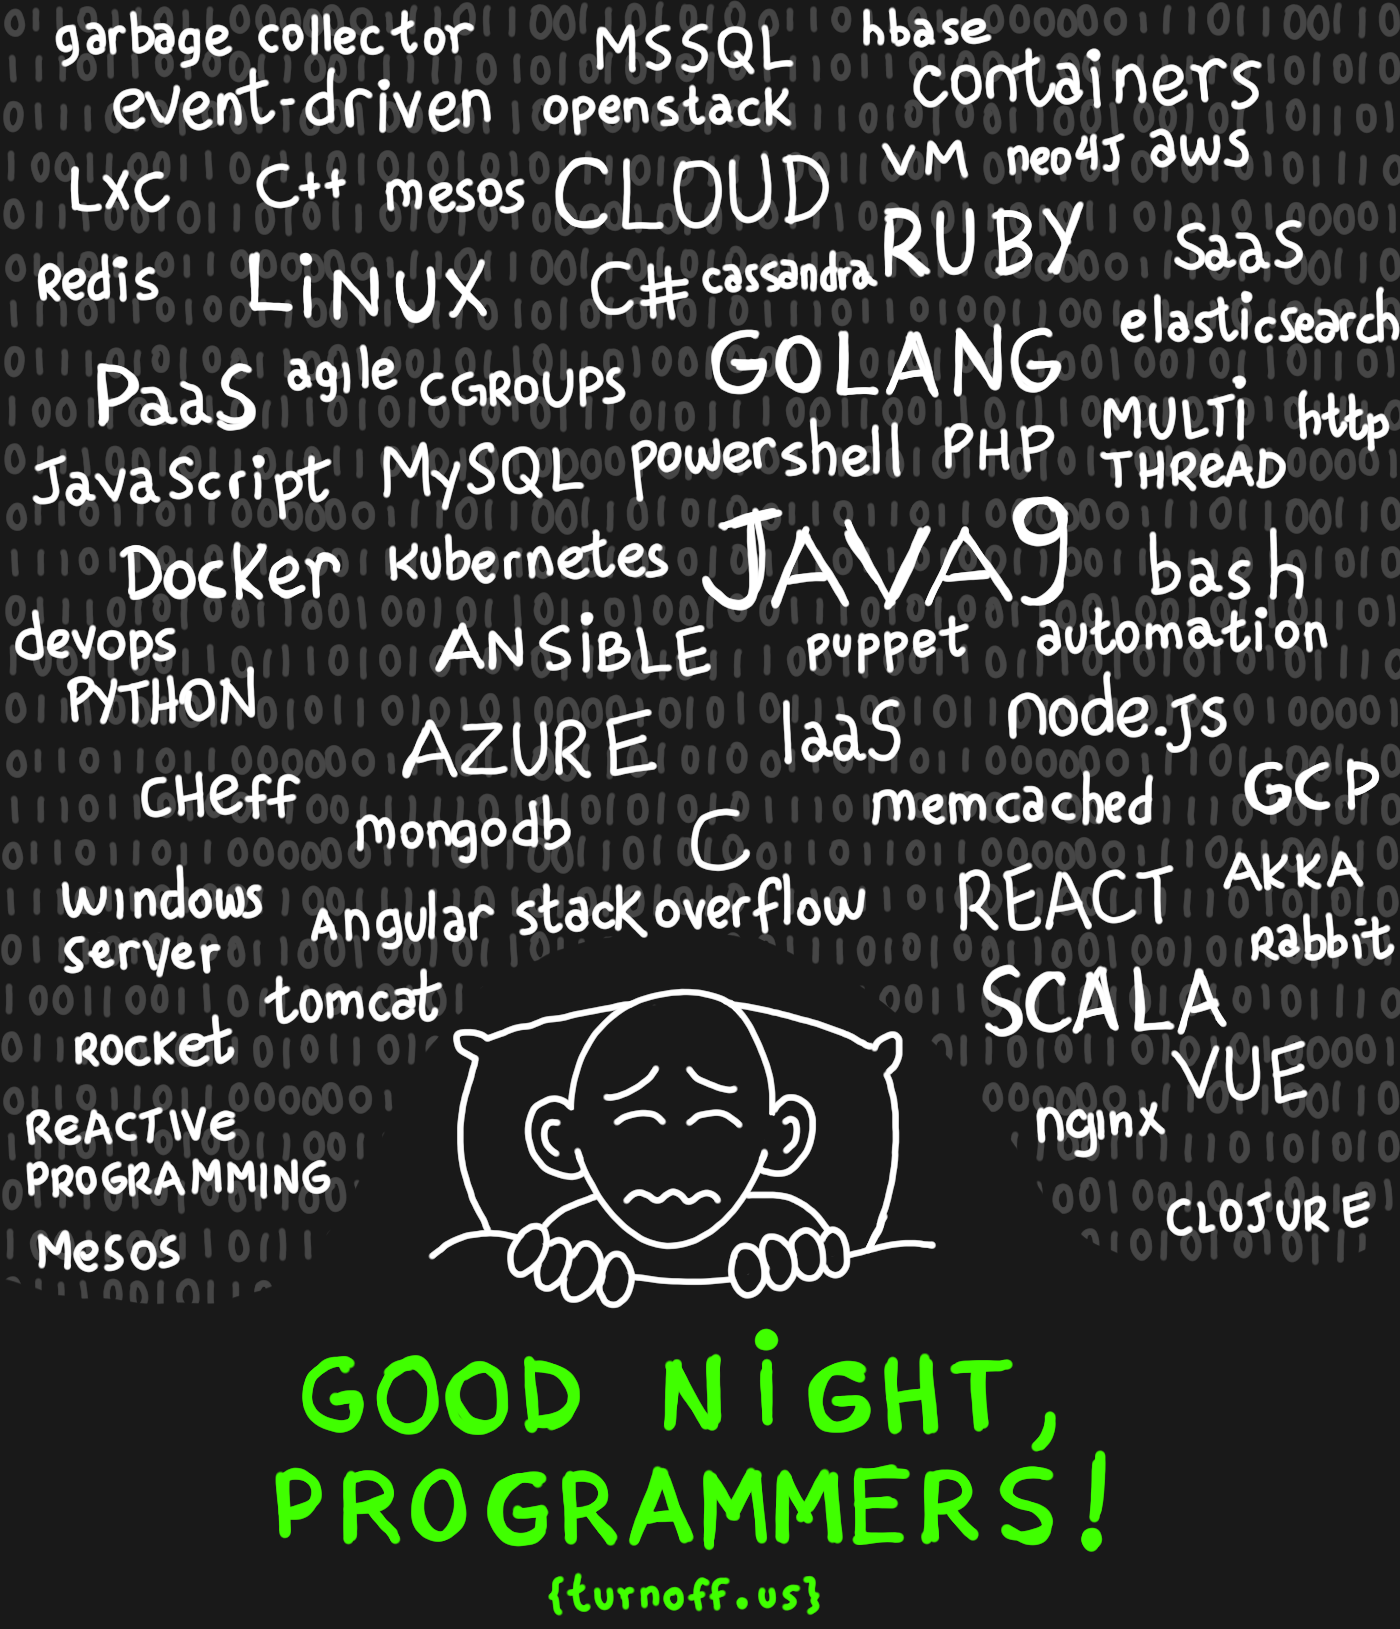 garbage collector MSSQL hbase
event-driven openstack containers
LXC C++ mesos CLOUD VM neo4J aws
Redis LiNUX C# cassandra RUBY SaaS
elasticsearch
PaaS agile CGROUPS GOLANG
JavaScript MySQL powershell PHP MULTi http
THReAD
DocKer Kubernetes JAVA9 bash
devops ANSiBLE puppet automation
PYTHON AZURE IaaS node.js
CHeff mongodb C memcached GCP
windows Angular stack overflow REACT AKKA
server Rabbit
tomcat SCALA
Rocket VUE
ReACTIVe nginx
PROGRAMMING
Mesos CLOJURE
GOOD NiGHT,
PROGRAMMERS!
{turnoff.us}